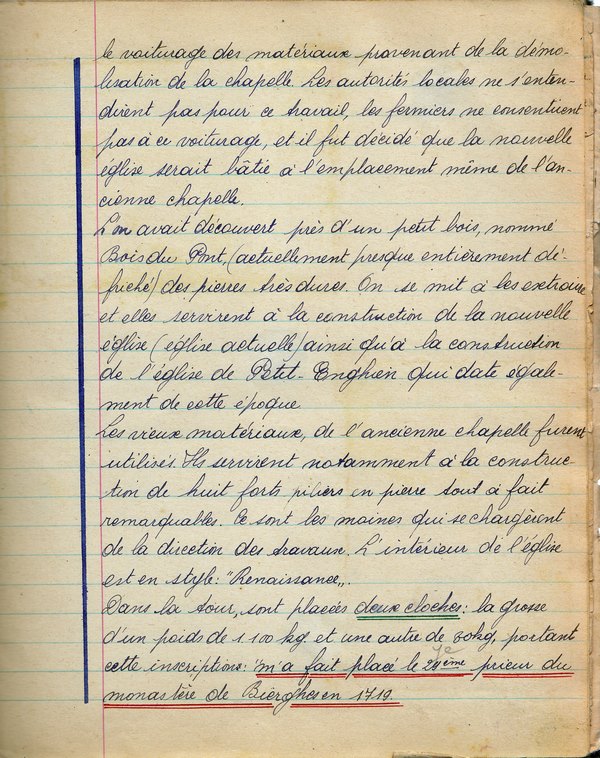 le voiturage des matériaux provenant de la démo-
lisation de la chapelle. Les autorités locales ne s'enten-
dirent pas pour ce travail, les fermiers ne consentirent
pas à ce voiturage, et il fut décidé que la nouvelle
église serait bâtie à l'emplacement même de l'an-
cienne chapelle.
L'on avait découvert près d'un petit bois, nommé
Bois du Pont, (actuellement presque entièrement dé-
friché) des pierres très dures. On se mit à les extraire
et elles servirent à la construction de la nouvelle
église (église actuelle) ainsi qu'à la construction
de l'église de Petit-Enghien qui date égale-
ment de cette époque
Les vieux matériaux, de l'ancienne chapelle furent
utilisés. Ils servirent notamment à la construc-
tion de huit forts piliers en pierre tout à fait
remarquables. Ce sont les moines qui se chargèrent
de la direction des travaux. L'intérieur de l'église
est en style: "Renaissance,,.
Dans la tour, sont placées deux cloches: la grosse
d'un poids de 1.100 kg et une autre de 80kg, portant
cette inscriptions: "m'a fait placé le ème prieur du
monastère de Bierghes en 1719.